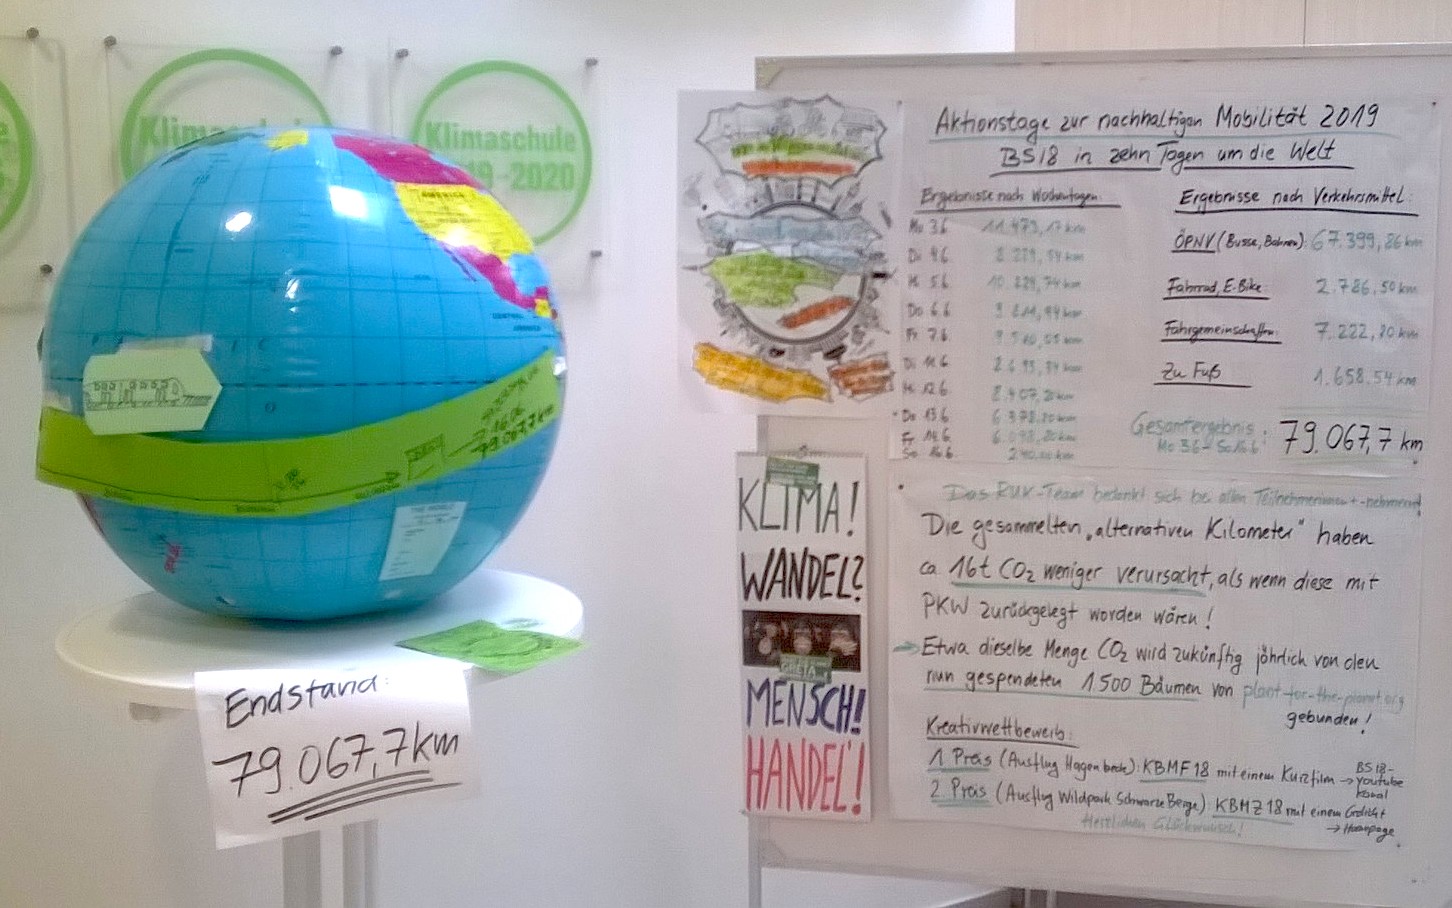 Klimaschule
Klimaschule
-2020
AMERICA
CENTRAL
AMERICA
THE WORLD
79.067,7km
Endstand:
79.067,7km
Aktionstage zur nachhaltigen Mobilität 2019
BS18 in zehn Tagen um die Welt
Ergebnisse nach Wochentagen:
Mo 3.6. 11.473,17 km
Di 4.6.
Mi 5.6.
Do 6.6.
Fr 7.6.
Di 11.6.
Mi 12.6.
Do 13.6.
Fr. 14.6.
So. 16.6.
Ergebnisse nach Verkehrsmittel:
ÖPNV (Busse, Bahnen): 67.399,86 km
Fahrrad, E-Bike: 2.786,50 km
Fahrgemeinschaften: 7.222,80 km
Zu Fuß 1.658.54 km
Gesamtergebnis: 79.067,7 km
Mo 3.6 - So 16.6
KLIMA!
WANDEL?
GRETA
MENSCH!
HANDEL'!
Das RUK-Team bedankt sich bei allen Teilnehmerinnen + -nehmern!
Die gesammelten „alternativen Kilometer" haben
ca 16t CO₂ weniger verursacht, als wenn diese mit
PKW zurückgelegt worden wären!
Etwa dieselbe Menge CO₂ wird zukünftig jährlich von den
nun gespendeten 1.500 Bäumen von plant-for-the-planet.org
gebunden!
Kreativwettbewerb:
1 Preis (Ausflug Hagenbeck): KBMF18 mit einem Kurzfilm → BS18-
Youtube
Kanal
2 Preis (Ausflug Wildpark Schwarze Berge): KBMZ18 mit einem Gedicht
→ Homepage
Herzlichen Glückwunsch!